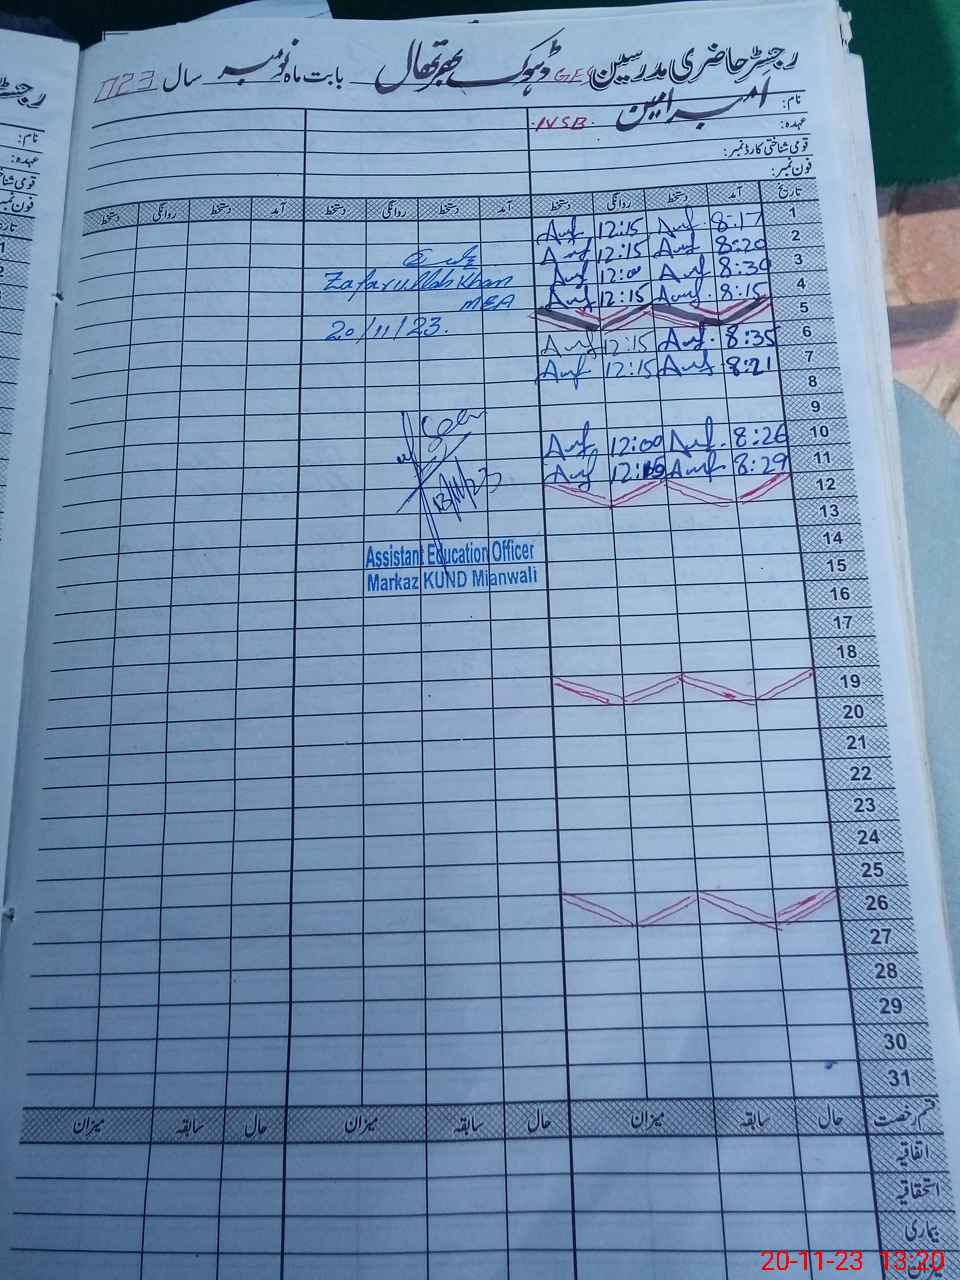 رجسٹر حاضری مدرسین GES ڈھوک بھرتھال بابت ماہ نومبر سال
نام: امبر امین
عہدہ: INSB
قومی شناختی کارڈ نمبر:
فون نمبر:
تاریخ آمد دستخط روانگی دستخط آمد دستخط روانگی دستخط آمد دستخط روانگی دستخط
1 8:17 12:15
2 8:20 12:15
3 8:30 12:00
4 8:15 12:15
5
6 8:35 12:15
7 8:21 12:15
8
9
10 8:26 12:00
11 8:29
12
13
14
15
16
17
18
19
20
21
22
23
24
25
26
27
28
29
30
31
Zafarullah Khan
MEA
20/11/23.
Seen
13/11/23
Assistant Education Officer
Markaz KUND Mianwali
قسم رخصت حال سابقہ میزان حال سابقہ میزان حال سابقہ میزان
اتفاقیہ
استحقاقیہ
بیماری
میزان
رجسٹر
نام:
عہدہ:
قومی شناختی
فون نمبر
1
2
3
20-11-23 13:20